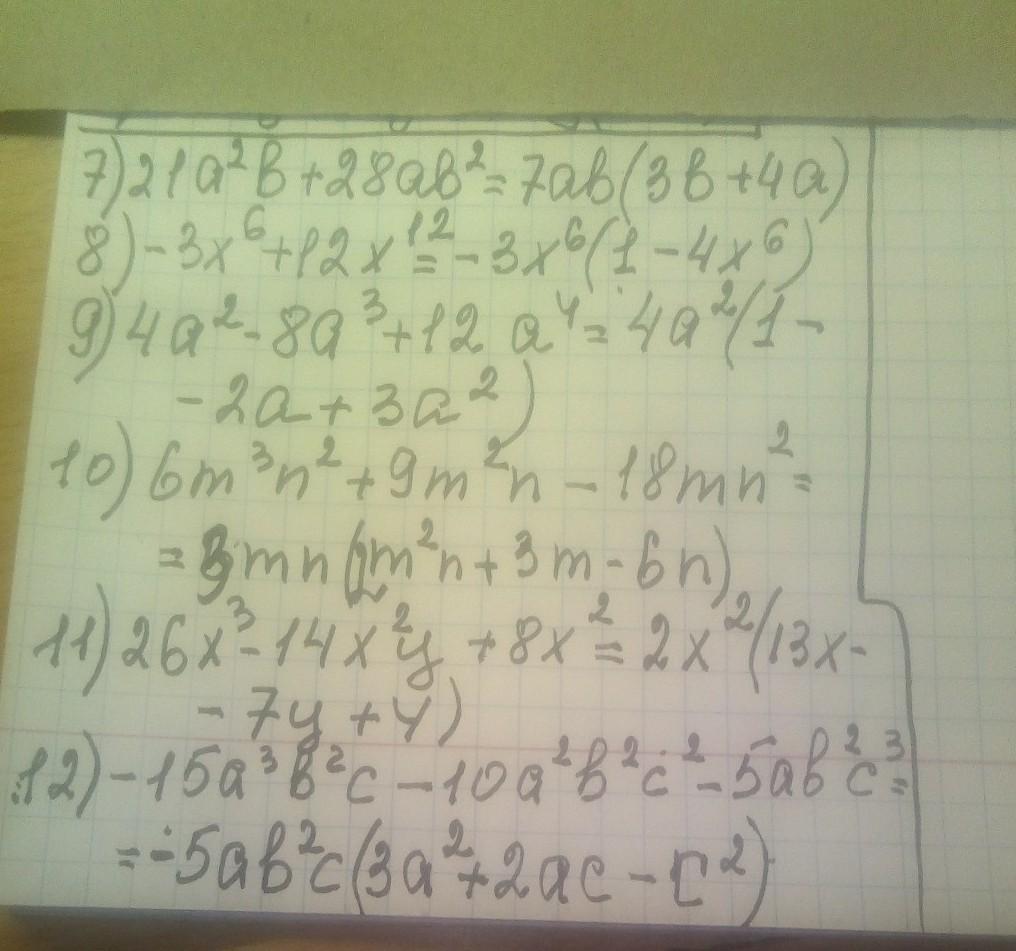 7) 21a²b + 28ab² = 7ab(3b + 4a)
8) -3x⁶ + 12x¹² = -3x⁶(1 - 4x⁶)
9) 4a² - 8a³ + 12a⁴ = 4a²(1 -
- 2a + 3a²)
10) 6m³n² + 9m²n - 18mn² =
= 3mn(2m²n + 3m - 6n)
11) 26x³ - 14x²y + 8x² = 2x²(13x -
- 7y + 4)
12) -15a³b²c - 10a²b²c² - 5ab²c³ =
= -5ab²c(3a² + 2ac - c²)